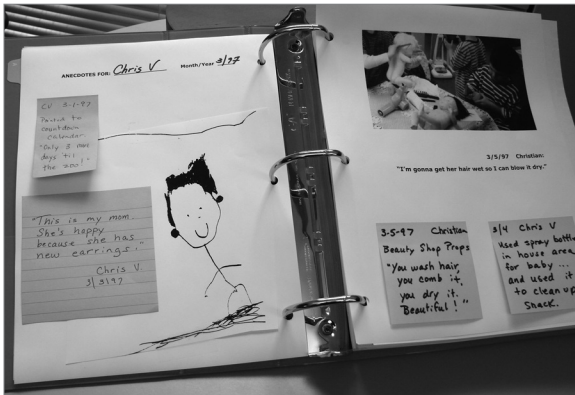 ANECDOTES FOR: Chris V Month/Year 3/97
CV 3-1-97
Pointed to
countdown
calendar
"Only 5 more
days til
the zoo!"
"This is my mom.
She's happy
because she has
new earrings."
Chris V.
3/3/97
3/5/97 Christian:
"I'm gonna get her hair wet so I can blow it dry."
3-5-97 Christian
Beauty Shop Props
"You wash hair,
you comb it,
you dry it.
Beautiful!"
3/4 Chris V
Used spray bottle
in house area
for baby ...
and used it
to clean up
snack.